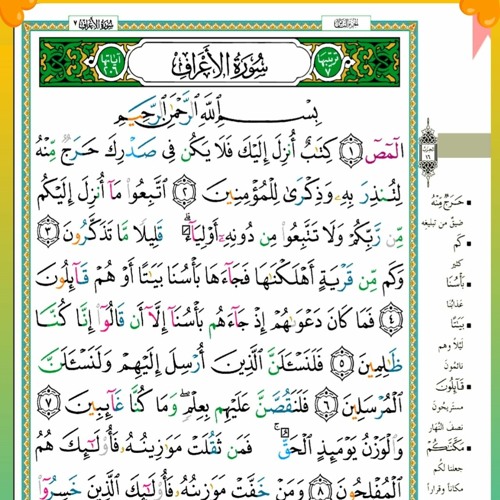 الجزء الثامن
سُورَةُ الأَعْرَافِ ٧
ترتيبها ٧
سُورَةُ الْأَعْرَافِ
آياتها
بِسْمِ ٱللَّهِ ٱلرَّحْمَٰنِ ٱلرَّحِيمِ
الٓمٓصٓ ١ كِتَٰبٌ أُنزِلَ إِلَيْكَ فَلَا يَكُن فِى صَدْرِكَ حَرَجٌ مِّنْهُ
لِتُنذِرَ بِهِۦ وَذِكْرَىٰ لِلْمُؤْمِنِينَ ٢ ٱتَّبِعُوا۟ مَآ أُنزِلَ إِلَيْكُم
مِّن رَّبِّكُمْ وَلَا تَتَّبِعُوا۟ مِن دُونِهِۦٓ أَوْلِيَآءَ ۗ قَلِيلًا مَّا تَذَكَّرُونَ ٣
وَكَم مِّن قَرْيَةٍ أَهْلَكْنَٰهَا فَجَآءَهَا بَأْسُنَا بَيَٰتًا أَوْ هُمْ قَآئِلُونَ
٤ فَمَا كَانَ دَعْوَىٰهُمْ إِذْ جَآءَهُم بَأْسُنَآ إِلَّآ أَن قَالُوٓا۟ إِنَّا كُنَّا
ظَٰلِمِينَ ٥ فَلَنَسْـَٔلَنَّ ٱلَّذِينَ أُرْسِلَ إِلَيْهِمْ وَلَنَسْـَٔلَنَّ
ٱلْمُرْسَلِينَ ٦ فَلَنَقُصَّنَّ عَلَيْهِم بِعِلْمٍ ۖ وَمَا كُنَّا غَآئِبِينَ ٧
وَٱلْوَزْنُ يَوْمَئِذٍ ٱلْحَقُّ ۚ فَمَن ثَقُلَتْ مَوَٰزِينُهُۥ فَأُو۟لَٰٓئِكَ هُمُ
ٱلْمُفْلِحُونَ ٨ وَمَنْ خَفَّتْ مَوَٰزِينُهُۥ فَأُو۟لَٰٓئِكَ ٱلَّذِينَ خَسِرُوٓا۟
حَرَجٌ مِّنْهُ
ضيق من تبليغه
كَم
كثير
بَأْسُنَا
عذابنا
بَيَٰتًا
ليلًا وهم
نائمون
قَآئِلُونَ
مستريحون
نصف النهار
مَكَّنَّٰكُمْ
جعلنا لكم
مكاناً وقراراً